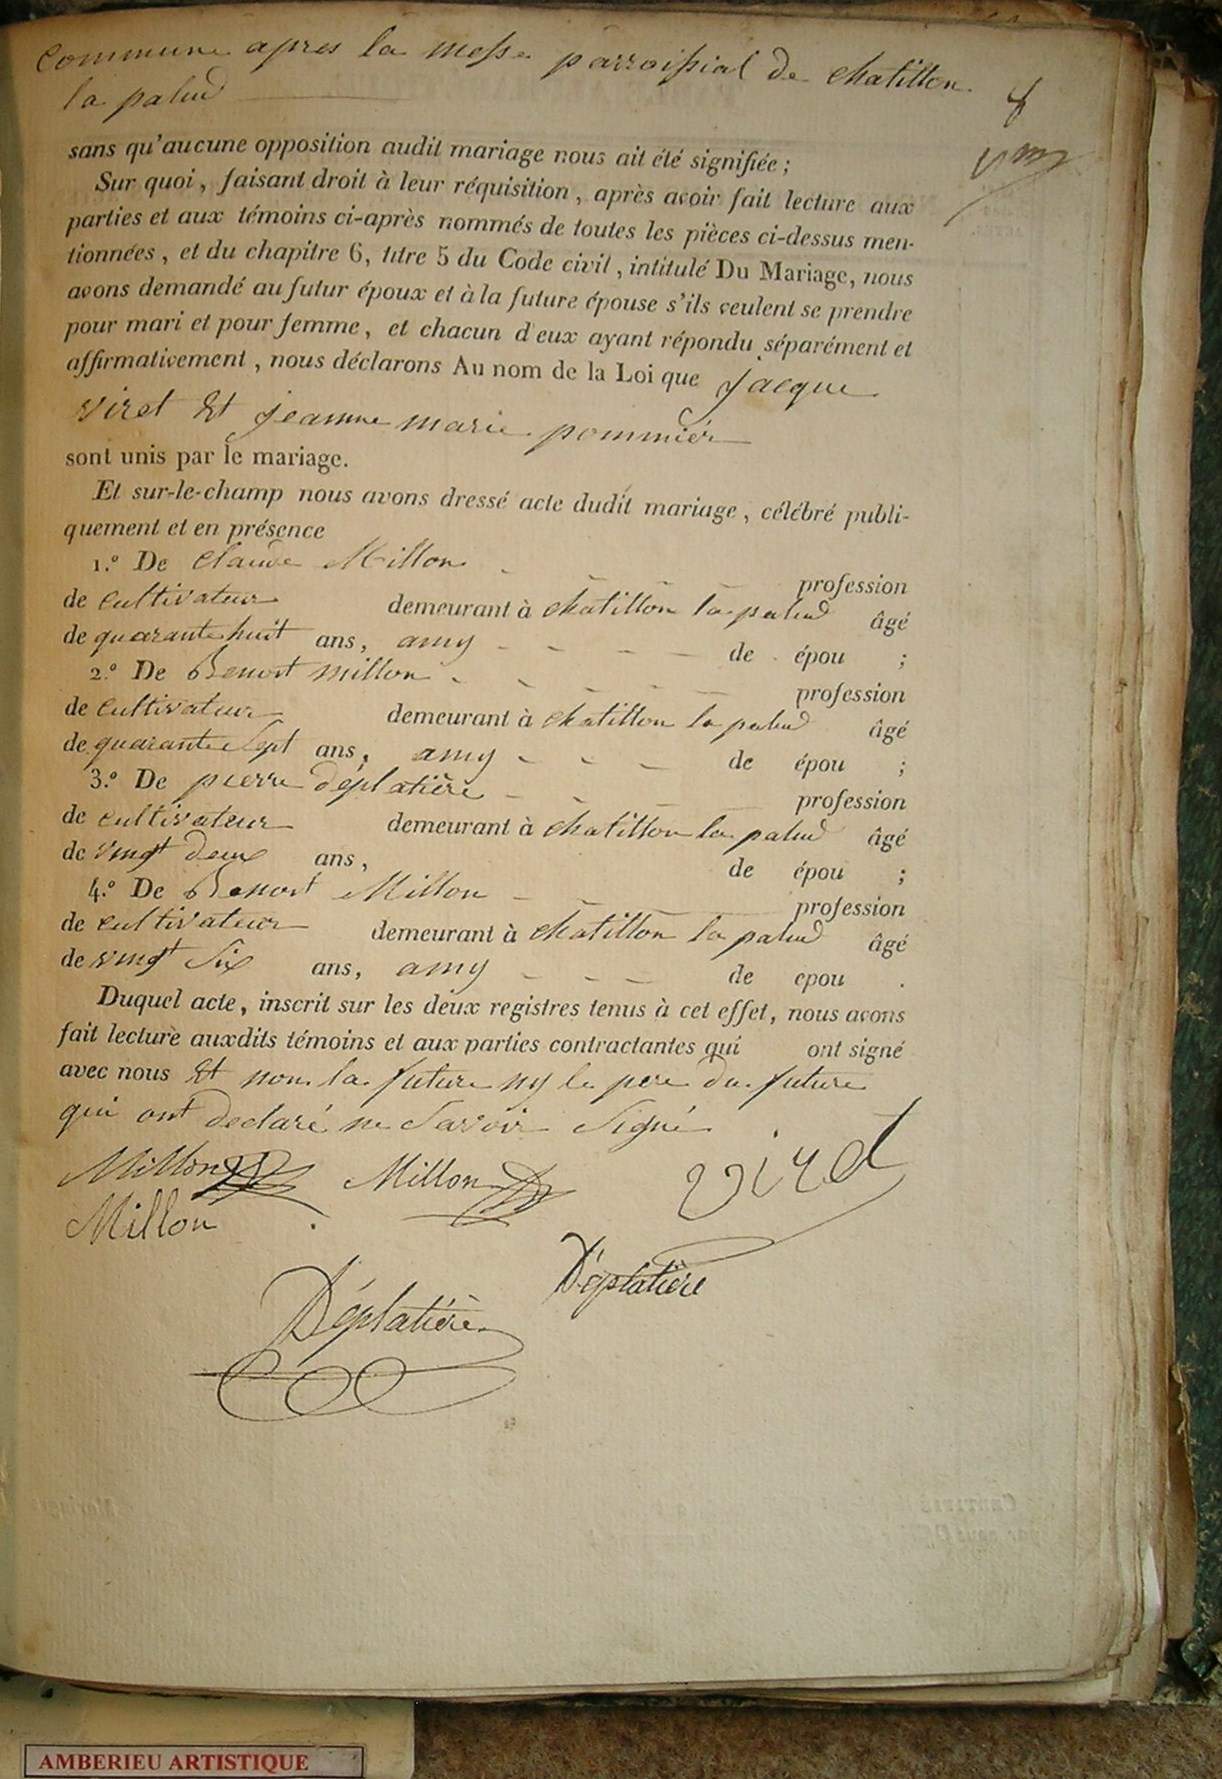 commune apres la messe parroissial de chatillon
la palud
8
sans qu'aucune opposition audit mariage nous ait été signifiée ;
Sur quoi, faisant droit à leur réquisition, après avoir fait lecture aux
parties et aux témoins ci-après nommés de toutes les pièces ci-dessus men-
tionnées, et du chapitre 6, titre 5 du Code civil, intitulé Du Mariage, nous
avons demandé au futur époux et à la future épouse s'ils veulent se prendre
pour mari et pour femme, et chacun d'eux ayant répondu séparément et
affirmativement, nous déclarons Au nom de la Loi que jacque
viret Et jeanne marie pommier
sont unis par le mariage.
Et sur-le-champ nous avons dressé acte dudit mariage, célébré publi-
quement et en présence
1.º De Claude Millon profession
de cultivateur demeurant à chatillon la palud âgé
de quarante huit ans, amy de épou ;
2.º De Benoit millon profession
de cultivateur demeurant à chatillon la palud âgé
de quarante Sept ans, amy de épou ;
3.º De pierre déplatière profession
de cultivateur demeurant à chatillon la palud âgé
de vingt deux ans, de épou ;
4.º De Benoit Millon profession
de cultivateur demeurant à chatillon la palud âgé
de vingt Six ans, amy de epou .
Duquel acte, inscrit sur les deux registres tenus à cet effet, nous avons
fait lecture auxdits témoins et aux parties contractantes qui ont signé
avec nous Et non la future ny le pere du future
qui ont declaré ne Savoir Signé
Millon Millon viret
Millon
Déplatière
Déplatière
AMBERIEU ARTISTIQUE